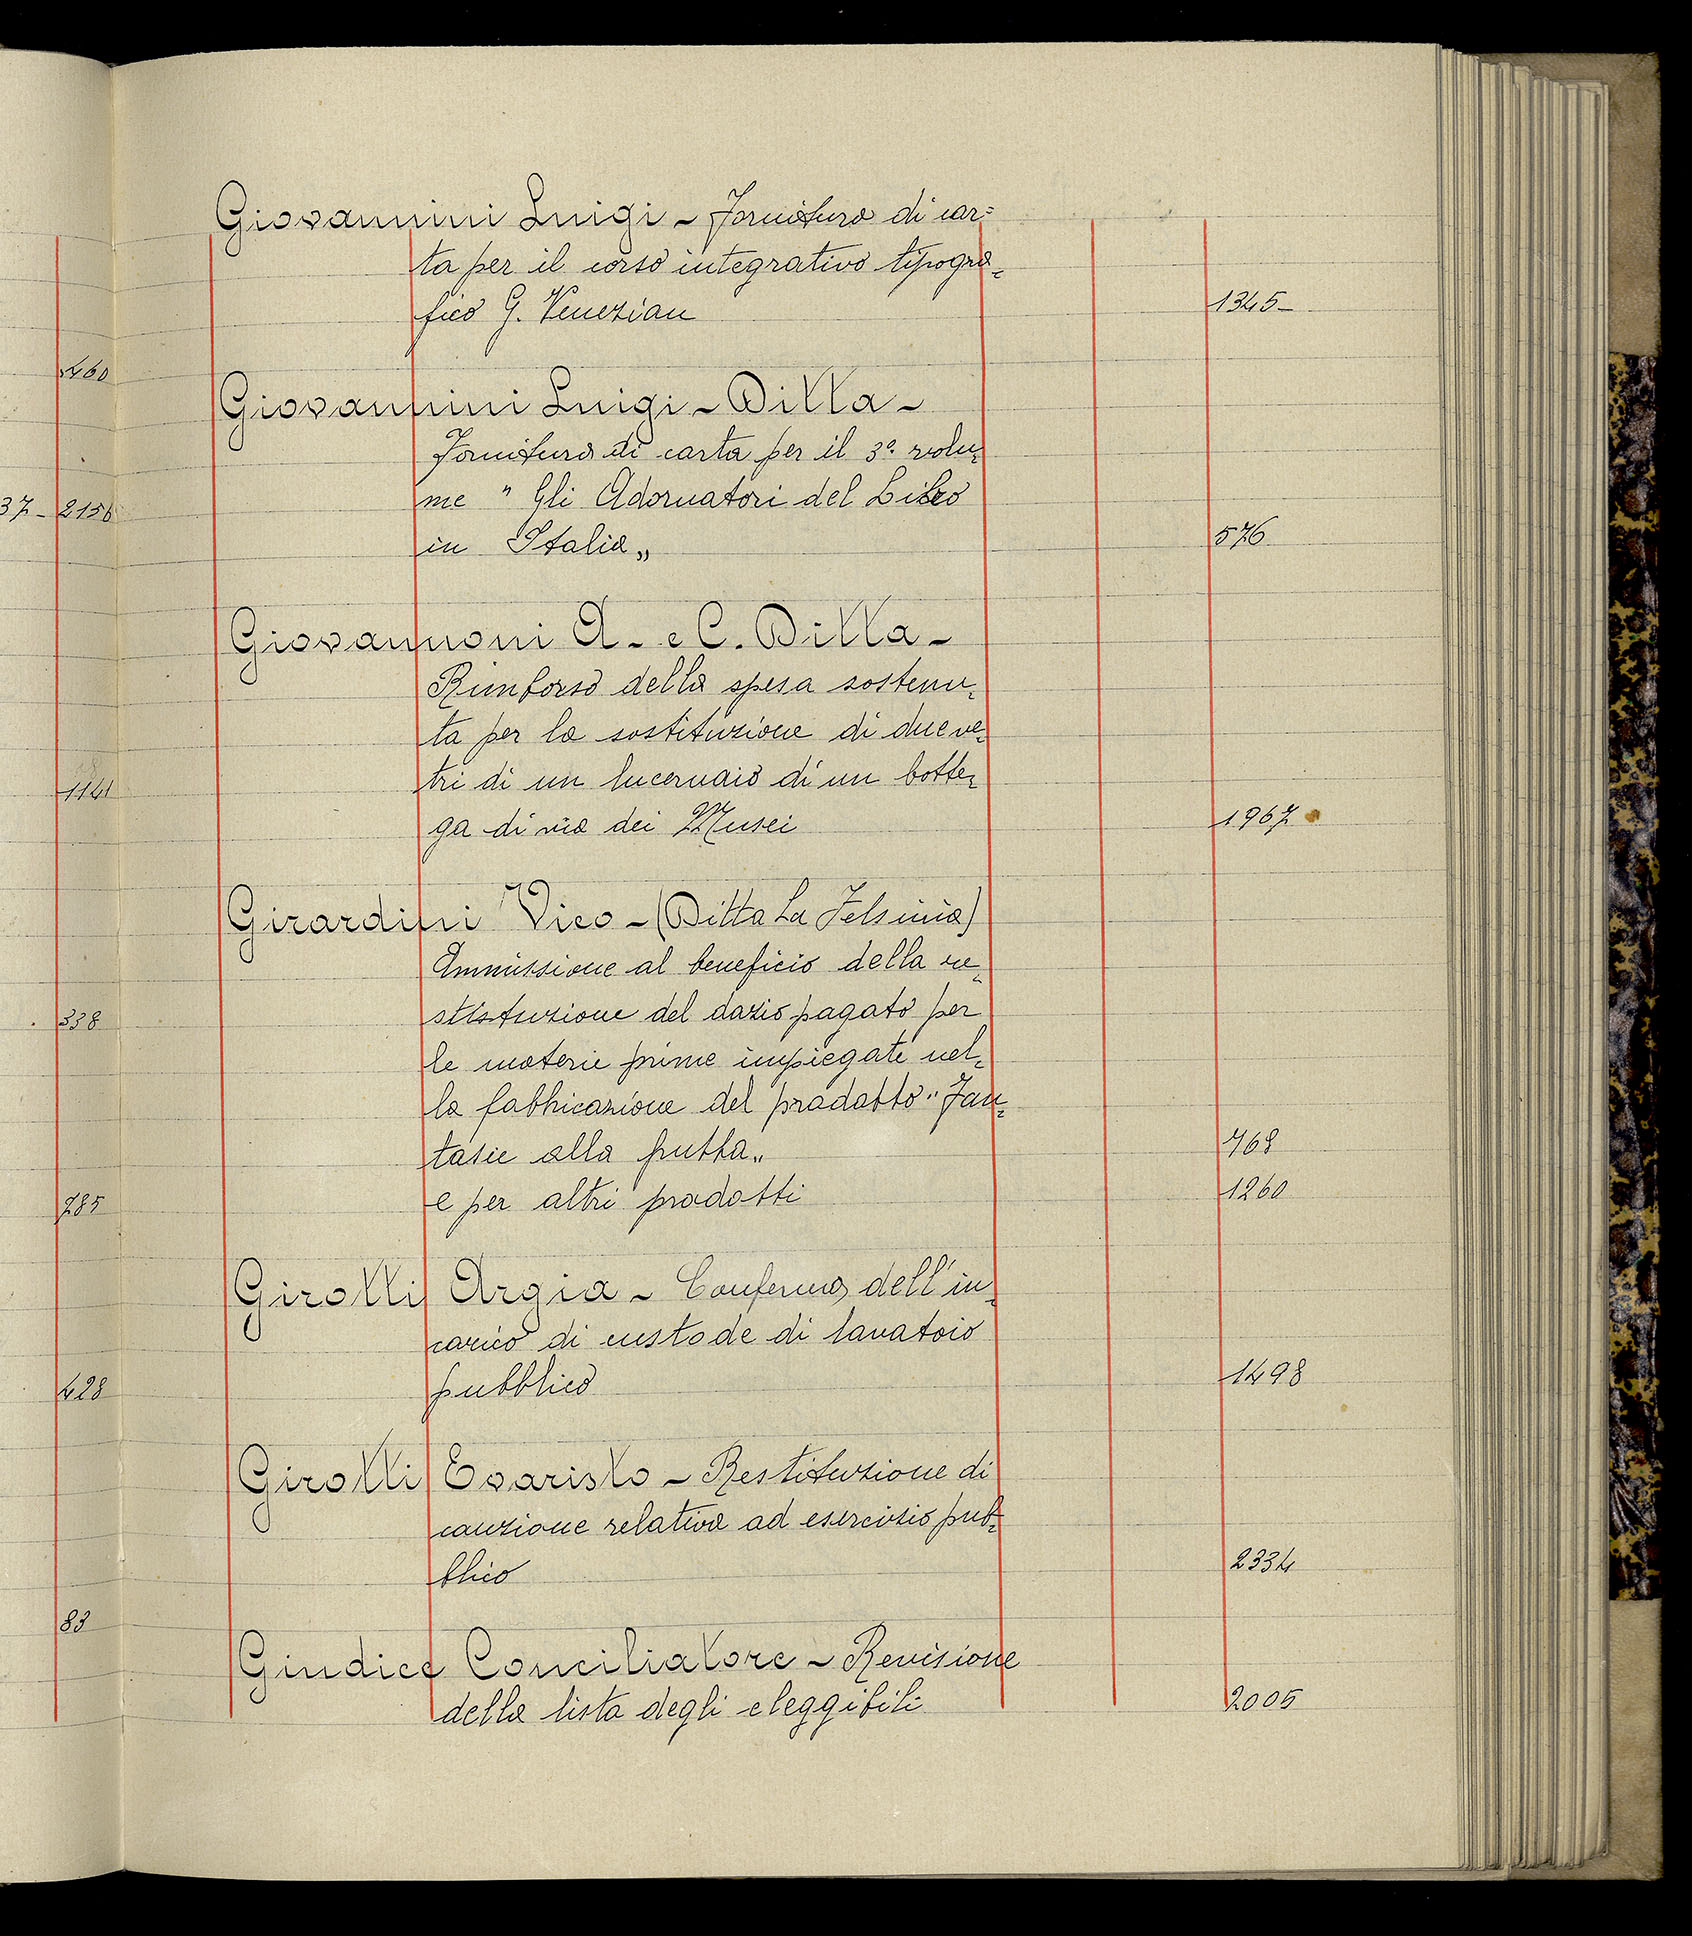 Giovannini Luigi - Fornitura di car=
ta per il corso integrativo tipogra-
fico G. Venezian 1345-
460
Giovannini Luigi - Ditta -
Fornitura di carta per il 3º volu-
me " Gli Adornatori del Libro
37- 2156
in Italia„ 576
Giovannoni A. e C. Ditta -
Rimborso della spesa sostenu-
ta per la sostituzione di due ve-
tri di un lucernaio di un botte-
1141
ga di via dei Musei 1967
Girardini Vico - (Ditta La Felsinia)
Ammissione al beneficio della re-
stituzione del dazio pagato per
338
le materie prime impiegate nel-
la fabbricazione del prodotto "Fan-
tasie alla frutta„ 768
e per altri prodotti 1260
785
Girotti Argia - Conferma dell'in-
carico di custode di lavatoio
pubblico 1498
428
Girotti Evaristo - Restituzione di
cauzione relativa ad esercizio pub-
blico 2334
83
Giudice Conciliatore - Revisione
della lista degli eleggibili 2005